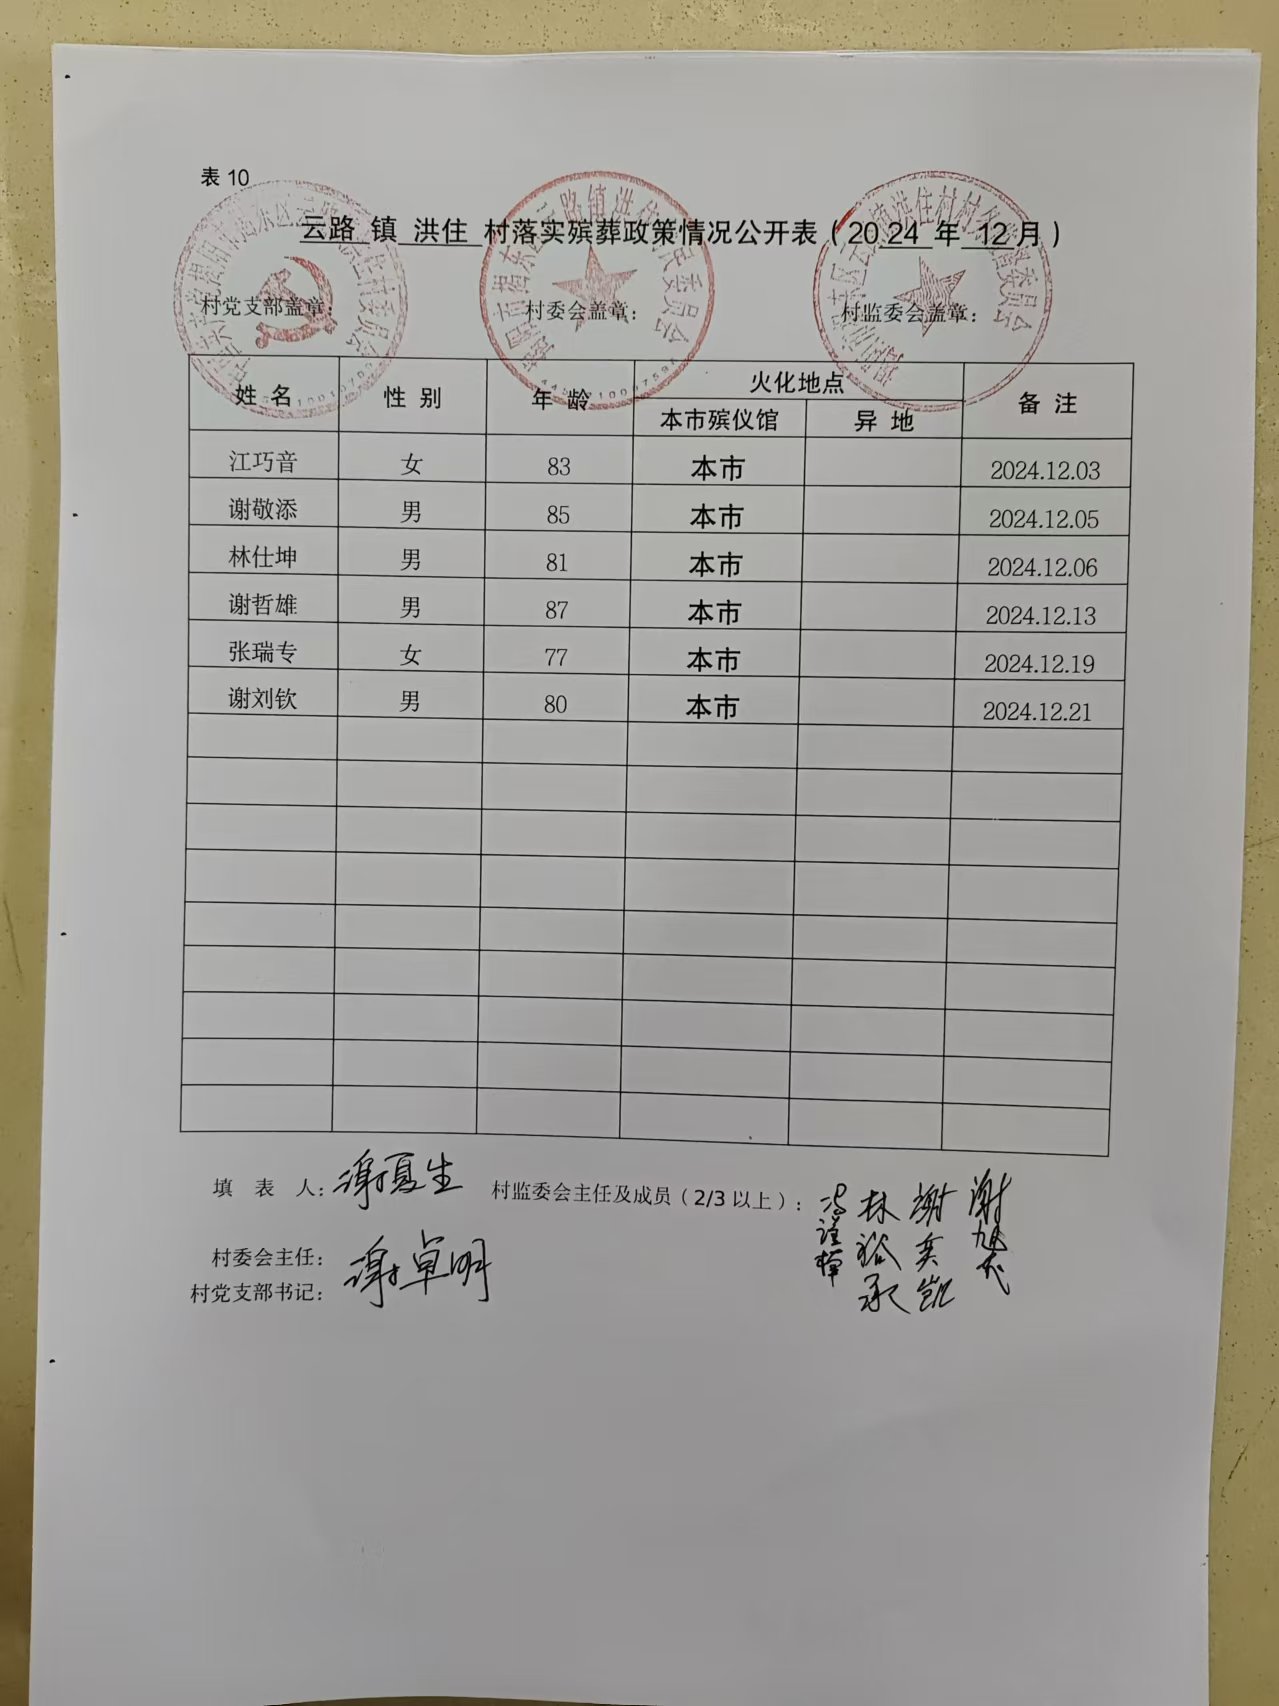 表 10
云路 镇 洪住 村落实殡葬政策情况公开表（2024 年 12 月）
村党支部盖章： 村委会盖章： 村监委会盖章：
姓 名 性 别 年 龄 火化地点 备 注
本市殡仪馆 异 地
江巧音 女 83 本市 2024.12.03
谢敬添 男 85 本市 2024.12.05
林仕坤 男 81 本市 2024.12.06
谢哲雄 男 87 本市 2024.12.13
张瑞专 女 77 本市 2024.12.19
谢刘钦 男 80 本市 2024.12.21
填 表 人：谢夏生 村监委会主任及成员（2/3 以上）： 林裕承 谢奕凯 谢旭
村委会主任：
村党支部书记：谢卓明